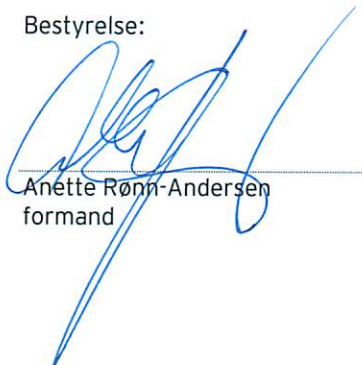 Bestyrelse:
Anette Rønn-Andersen
formand